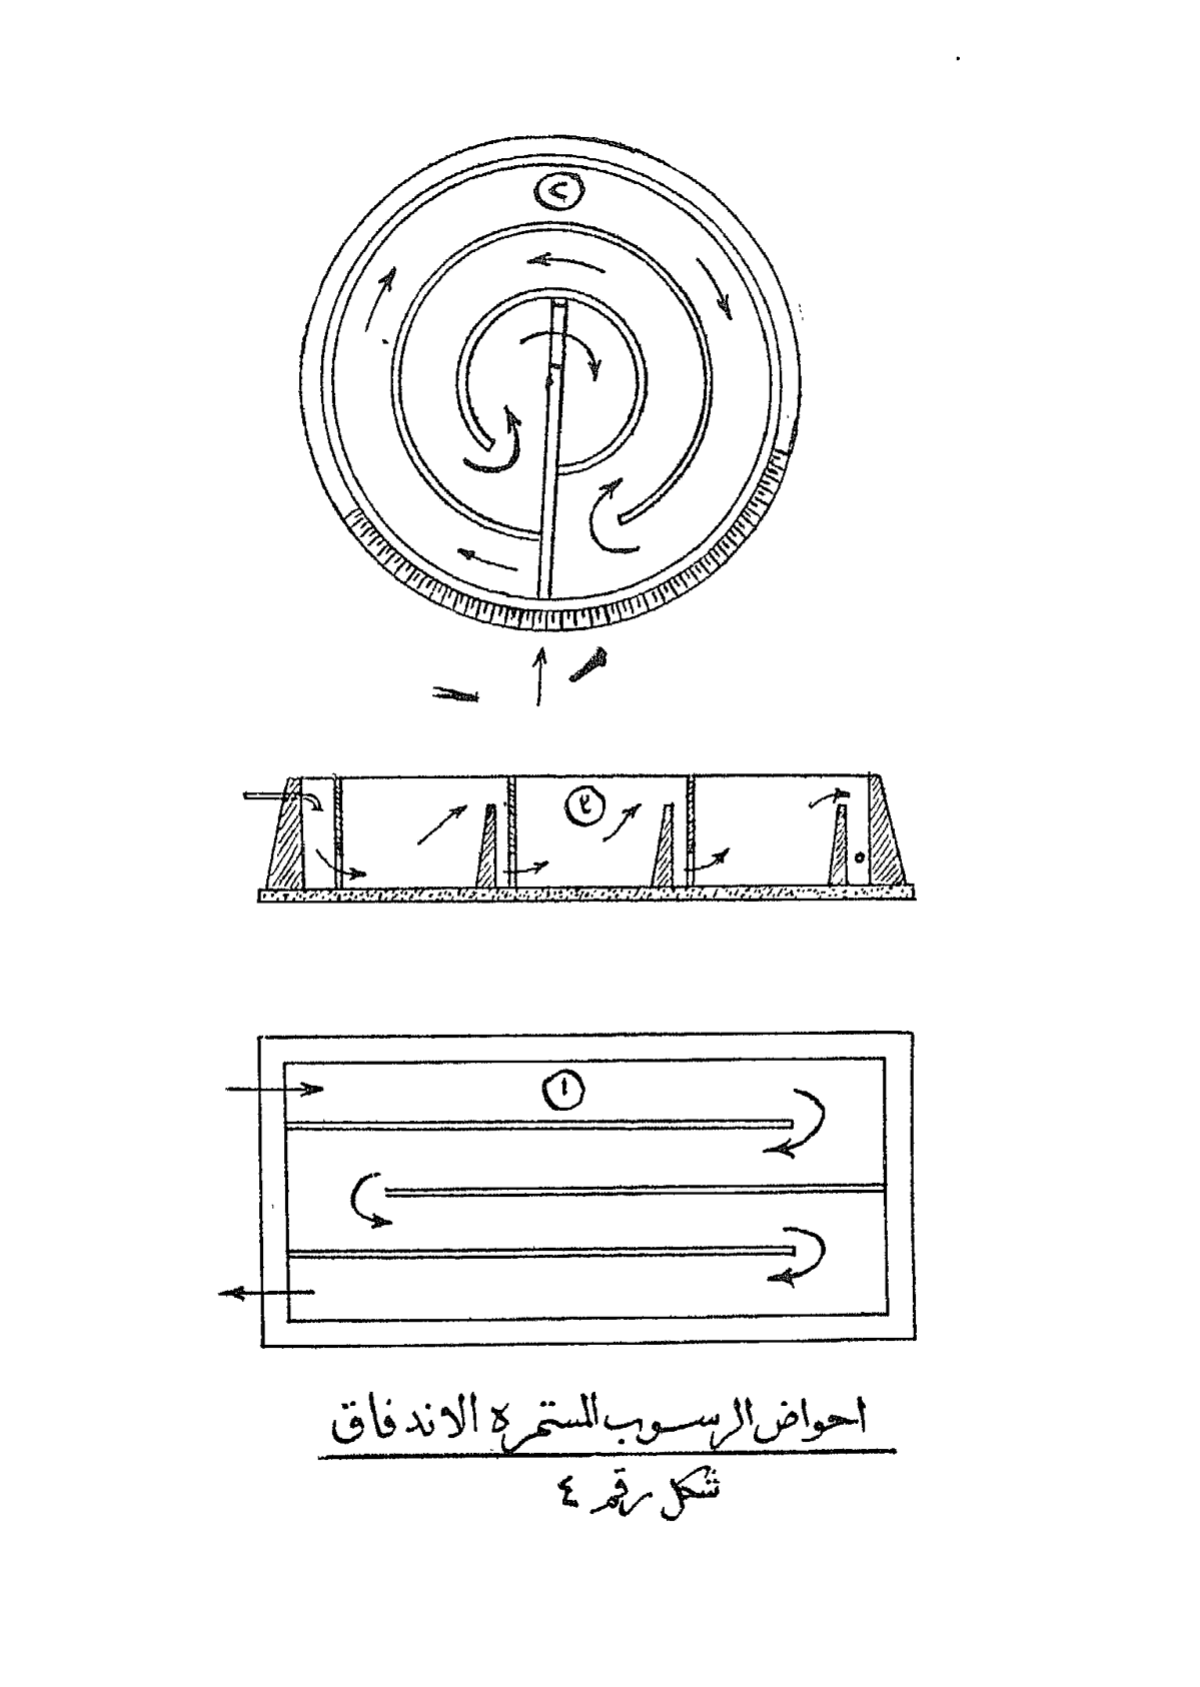 ٢
١
احواض الرسوب المستمره الاندفاق
شكل رقم ٤